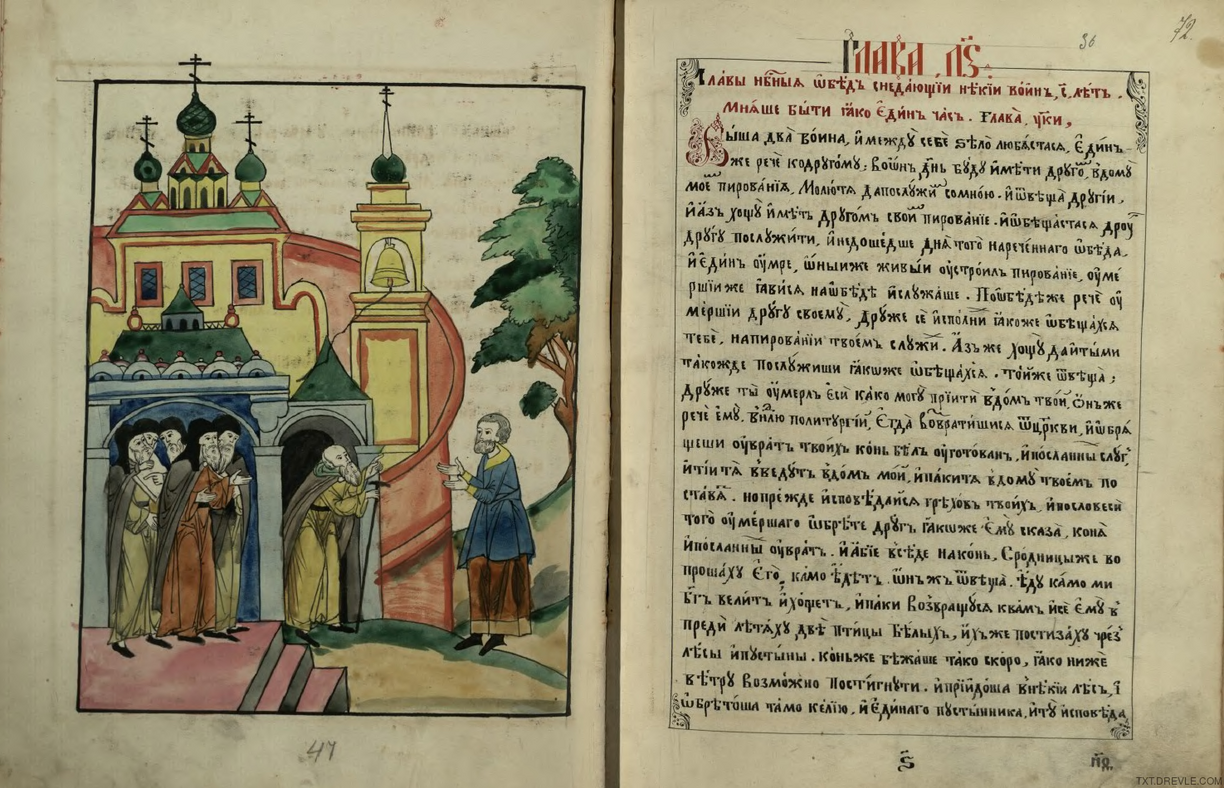 47
72.
36
Глава̀ , л҃ѕ :
Главы нб҃ныѧ ѡ҆бѣдъ снеда́ющїи нѣ́кїи во́йнъ, т҃, лѣ́тъ .
Мнѧ́ше бы́ти ꙗ҆́кѡ Е҆ди́нъ ча́съ . Глава̀,
Бы́ша два̀ во́ина, и҆ междꙋ̀ себѐ ѕѣлѡ̀ любѧ́стасѧ, Е҆ди́нъ
же речѐ кодрꙋго́мꙋ, во ѻ҆́нъ дн҃ь бꙋ́дꙋ и҆мѣ́ти дрꙋго, вдомꙋ̀
мое́мъ пирова́нїѧ, Молютѧ дапослꙋ́жи сомно́ю . и҆ѿвѣща̀ дрꙋгі́и,
и҆ а҆́зъ хощꙋ̀ и҆мѣ́ть дрꙋго́мъ свой пирова́нїе . и҆ѡ҆бѣща́стасѧ дрꙋ
дрꙋ́гꙋ послꙋжи́ти, и҆недоше́дше днѧ̀ того̀ нарече́ннаго ѡ҆бѣ́да,
и҆ Е҆ди́нъ ᲂу҆́мре, ѡ҆́ныиже живы́и ᲂу҆стро́илъ пирова́нїе, ᲂу҆ме́
ршїи же ꙗ҆ви́сѧ наѡ҆бѣ́дѣ и҆слꙋжа́ше . Поѡ҆бѣ́дѣже речѐ ᲂу҆
ме́ршїи дрꙋ́гꙋ своемꙋ̀, дрꙋ́же сѐ и҆спо́лни ꙗ҆́коже ѡ҆бѣща́хсѧ
тебѐ, напирова́нїи твое́мъ слꙋжи . А҆́зъ же хощꙋ̀ да и҆ ты́ ми
та́кожде послꙋжиши ꙗ҆́кѡже ѡ҆бѣща́хсѧ . то́йже ѿвѣща̀ ;
Дрꙋ́же ты̀ ᲂу҆́мерлъ Е҆сѝ ка́ко могꙋ̀ прїитѝ вдо́мъ тво́й, О҆́нъже
речѐ Е҆мꙋ̀, внлю политꙋргі́и, Е҆гда̀ вовратишисѧ ѿц҃ркви, и҆ѡ҆брѧ́
щеши ᲂу҆вра́тъ твои́хъ ко́нь бѣ́лъ ᲂу҆гото́ванъ, и҆посланны слꙋг,
и҆ті́и тѧ введꙋ́тъ вдо́мъ мо́й, и҆па́китѧ вдомꙋ̀ твое́мъ по
ста́вѧ . нопре́жде и҆сповѣ́дайсѧ грѣхо́въ твои́хъ, и҆пословеси̂
того̀ ᲂу҆ме́ршаго ѡ҆брѣ́те дрꙋ́гъ ꙗ҆́кѡже Е҆мꙋ̀ сказа̀, конѧ̀
и҆посланны ᲂу҆вра́тъ . и҆ а҆́бїе всѣ́де нако́нь, Сро́дницыже во
проша́хꙋ Е҆го̀, ка́мо ѣ҆́детъ . ѡ҆́нъ жъ ѿвѣща̀ . ѣ҆́дꙋ ка́мо ми
бг҃ъ вели́тъ и҆хо́щетъ, и҆па́ки возвращꙋ́сѧ ква́мъ и҆сѐ Е҆мꙋ̀ в
предѝ лѣтѧ́хꙋ двѣ̀ пти́цы Бѣ́лыхъ, и҆́хъже постиза́хꙋ чре́з
лѣсы и҆пꙋсты́ны . ко́ньже бѣжа́ше та́ко ско́ро, ꙗ҆́ко ниже
вѣ́трꙋ возмо́жно пости́гнꙋти . и҆прїидо́ша внѣ́кїи лѣ́съ, і҆
ѡ҆брѣто́ша та́мо ке́лїю, и҆ Е҆ди́наго пꙋсты́нника, и҆тꙋ̀ и҆сповѣ́да
ѕ҃
TXT.DREVLE.COM